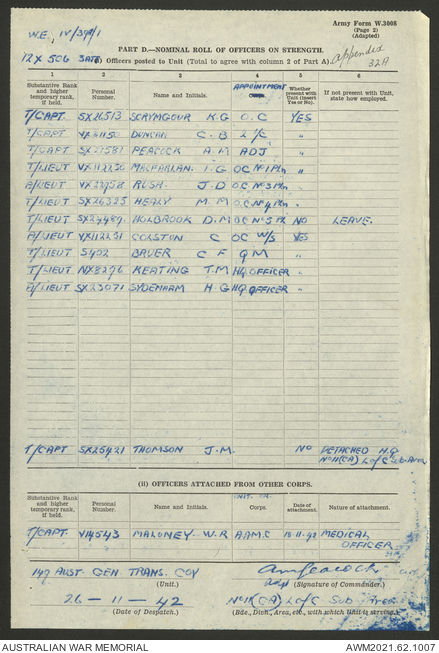 Army Form W.3008
(Page 2)
(Adapted)
W.E. IV/
appendix
32A
PART D.—NOMINAL ROLL OF OFFICERS ON STRENGTH.
Officers posted to Unit (Total to agree with column 2 of Part A)
1 2 3 4 5 6
Substantive Rank and higher temporary rank, if held. Personal Number. Name and Initials. APPOINTMENT Whether present with Unit (insert Yes or No). If not present with Unit, state how employed.
T/CAPT SX26513 SCRYMGOUR K.G O.C YES
T/CAPT DUNCAN C.B 2/C "
T/CAPT PEACOCK A M ADJ "
T/LIEUT VX112250 MACFARLAN. I.G OC No 1 Pln "
A/LIEUT RUSH. J.D OC No 3 Pln "
T/LIEUT SX24325 HEALY M.M OC No 4 Pln "
T/LIEUT SX24489 HOLBROOK D.M OC No 5 NO LEAVE.
A/LIEUT VX112251 COLSTON C OC W/S YES
T/LIEUT S402 BAUER C F QM "
T/LIEUT NX8296 KEATING T.M HQ OFFICER "
A/LIEUT SX23071 SYDENHAM H.G HQ OFFICER "
T/CAPT SX25421 THOMSON J.M. NO DETACHED H.Q.
No 11(CA) L of C Sub-Area
(ii) OFFICERS ATTACHED FROM OTHER CORPS.
Substantive Rank and higher temporary rank, if held. Personal Number. Name and Initials. UNIT OR Corps. Date of attachment. Nature of attachment.
T/CAPT. V14543 MALONEY. W.R A.A.M.C 18-11-42 MEDICAL
OFFICER
147 AUST. GEN TRANS. COY
(Unit.)
AM Peacock Capt
Adjt (Signature of Commander.)
26-11-42
(Date of Despatch.)
No 11(CA) L of C Sub Area
(Bde., Divn., Area, etc., with which Unit is serving.)
AUSTRALIAN WAR MEMORIAL
AWM2021.62.1007